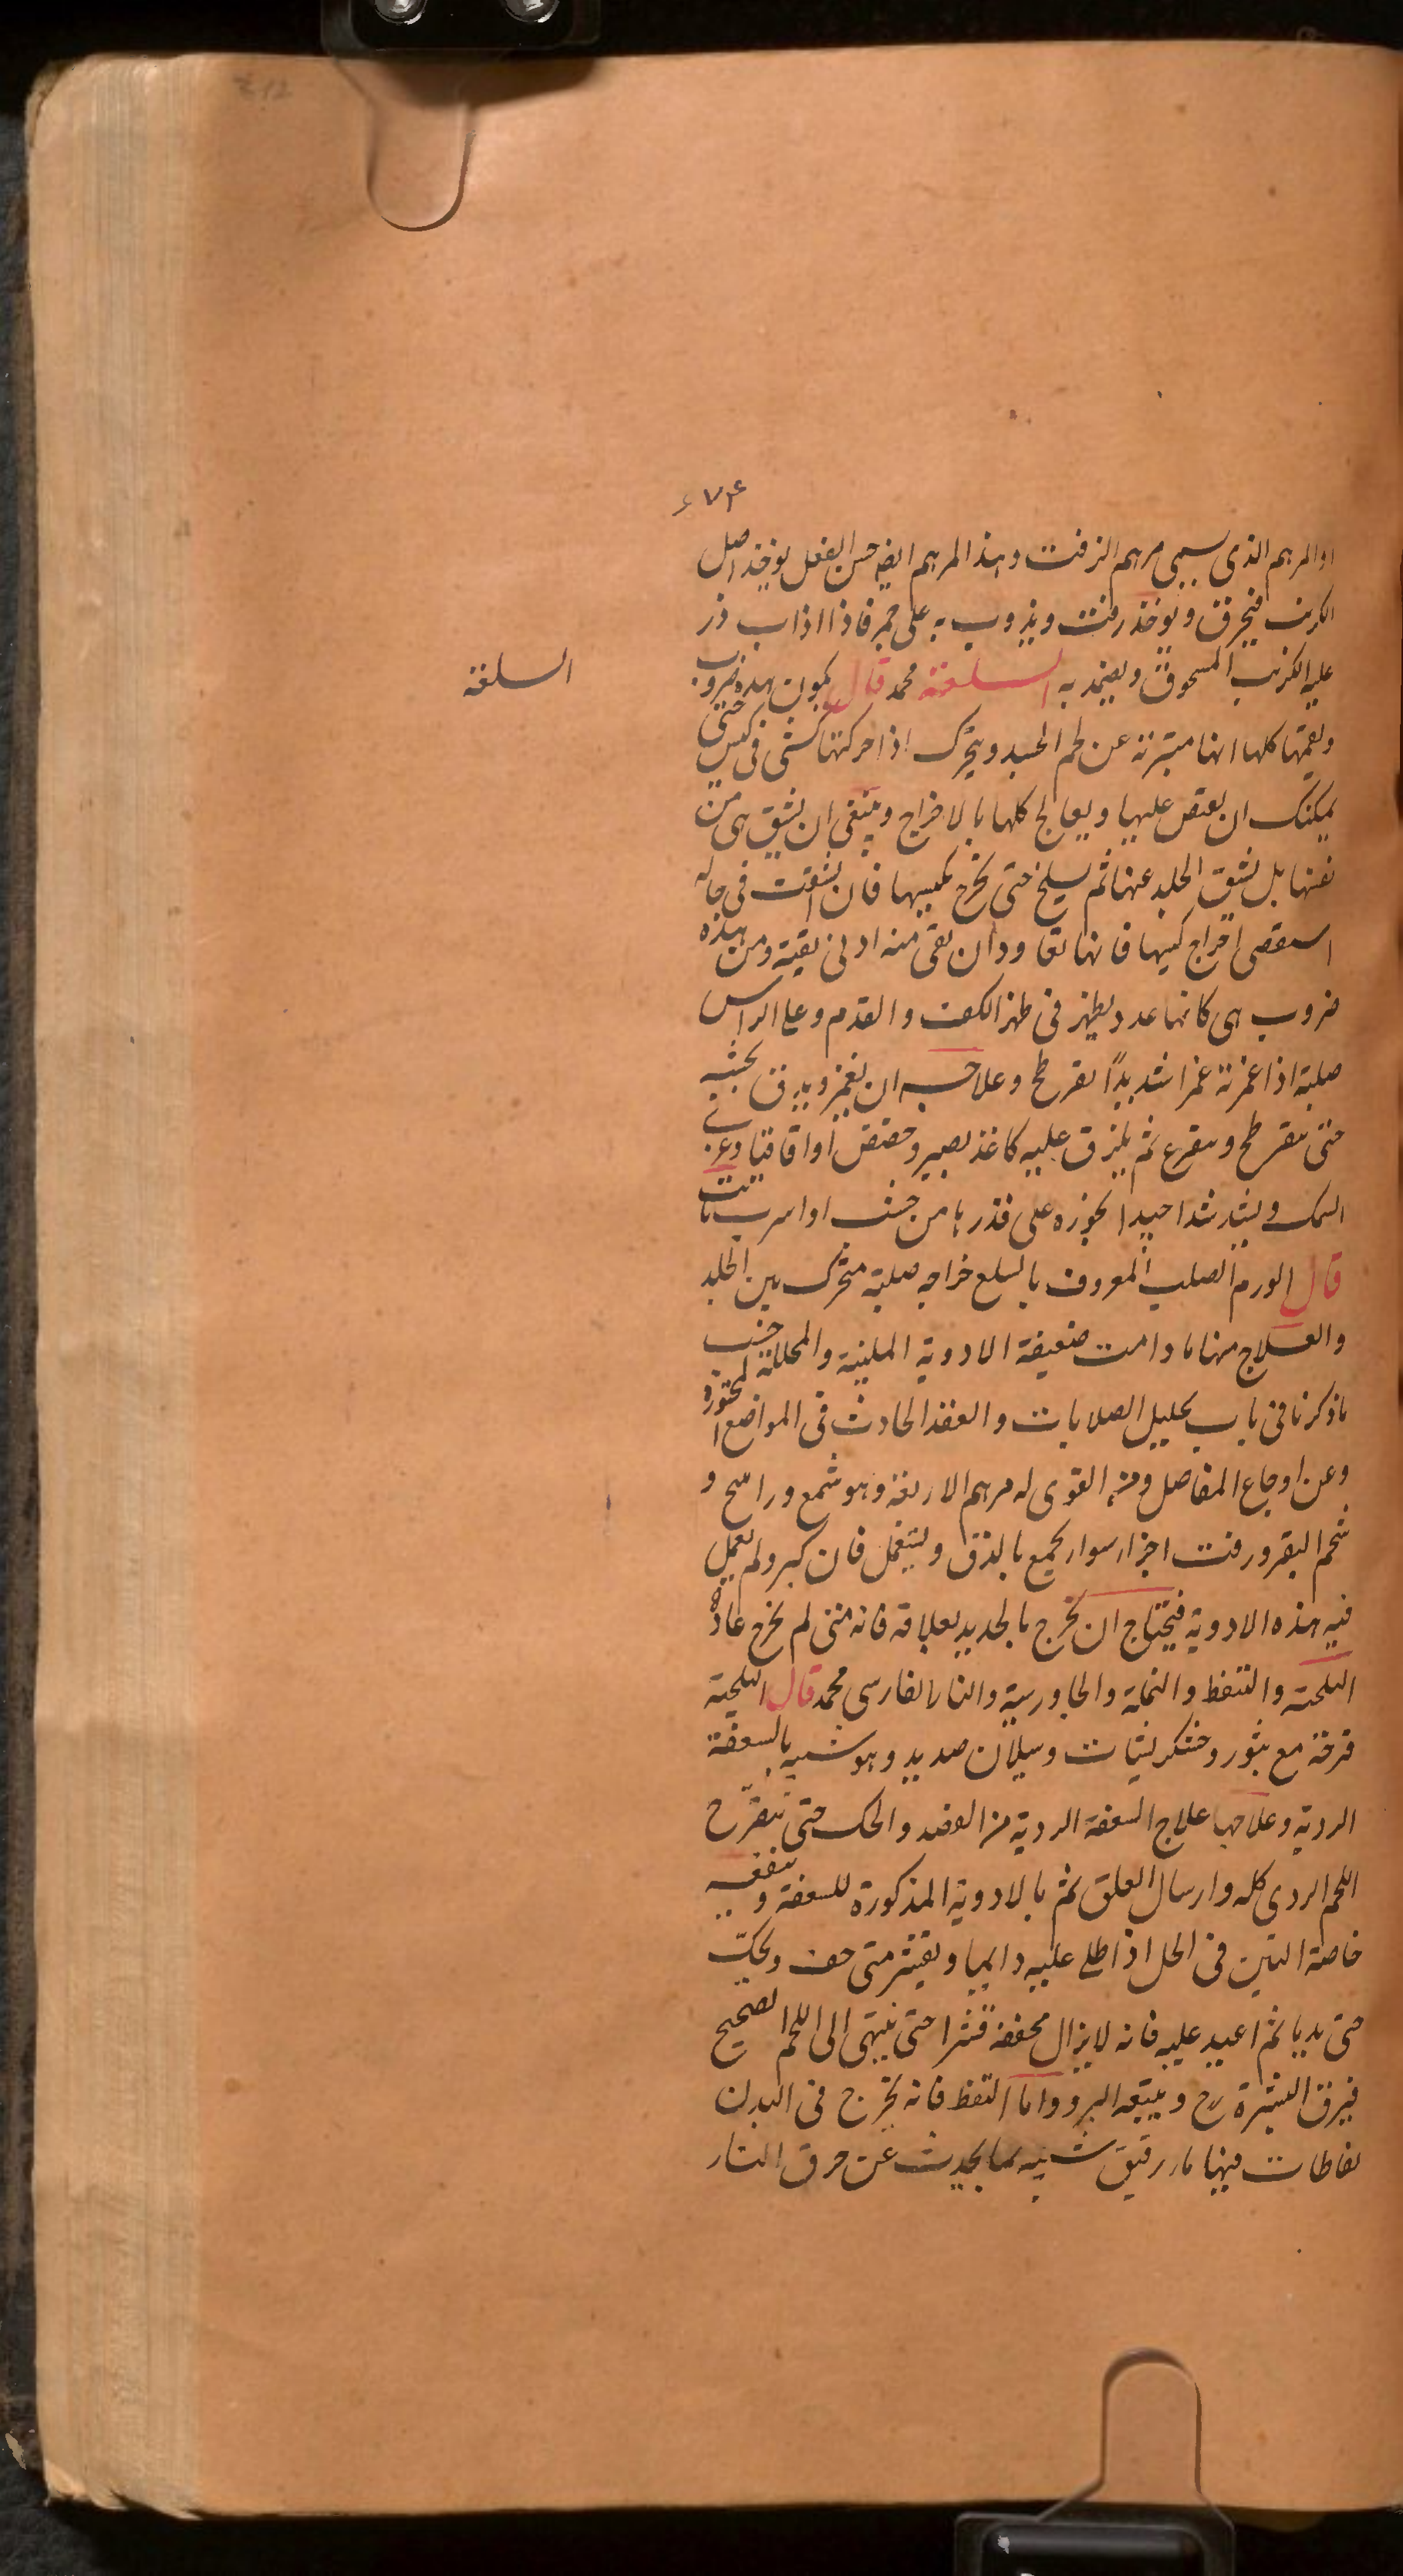 ٦٧٤
او المرهم الذى يسمى مرهم الزفت وهذا المرهم ايضا حسن الفعل يوخذ اصل
الكرنب فيحرق ويوخذ زفت ويذوب به على جمر فاذا اذاب ذر
عليه الكرنب المسحوق ويضمد به السلعة محمد قال يكون هذه ضروب
السلعة
ويعمها كلها انها متبرئة عن لحم الجسد ويتحرك اذا حركتها كشى فى كيس حتى
يمكنك ان يقبض عليها ويعالج كلها بالاخراج وينبغى ان يشق هى من
نفسها بل يشق الجلد عنها ثم يسلخ حتى يخرج بكيسها فان انشقت فى حاله
استقصى اخراج كيسها فانها تعاود ان بقى منه ادنى بقية ومن هذه
ضروب هى كانها عدد يظهر فى ظهر الكف والقدم وعلى الراس
صلبة اذا غمزته غمزا شديدًا تفرطح وعلاجه ان يغمز ويدق بخشبه
حتى يتفرطح ويتفرع ثم يلزق عليه كاغذ بصبر وحضض او اقاقيا وغرى
السمك ويشد شدا جيدا بخوزه على قدرها من خشب او اسرب ثابت
قال الورم الصلب المعروف بالسلع خراجه صلبة متحرك بين الجلد
والعلاج منها ما دامت ضعيفة الادوية الملينة والمحللة حسب
ما ذكرنا فى باب تحليل الصلابات والعقد الحادث فى المواضع المختوره
وعن اوجاع المفاصل ومن القوى له مرهم الاربعة وهو شمع وراسخ و
شحم البقر وزفت اجزا سوا يجمع بالدق ويستعمل فان كبر ولم يعمل
فيه هذه الادوية فيحتاج ان يخرج بالحديد بعلاقه فانه متى لم يخرج عاد
البلحية والتنفط والنملة والجاورسية والنار الفارسى محمد قال البلحية
قرحة مع بثور وخشكريشات وسيلان صديد وهو شبيه بالسعفة
الردية وعلاجها علاج السعفة الردية من الفصد والحك حتى يتقرح
اللحم الردى كله وارسال العلق ثم بالادوية المذكورة للسعفة وينفعه
خاصة التين فى الخل اذا طلى عليه دايما ويقشر متى جف ويحك
حتى يدما ثم اعيد عليه فانه لا يزال مجففه قشرا حتى ينتهى الى اللحم الصحيح
فيرق البشرة رح ويتبعه البرو واما التنفط فانه يخرج فى البدن
نفاطات فيها ما رقيق شبيه بما يحدث عن حرق النار